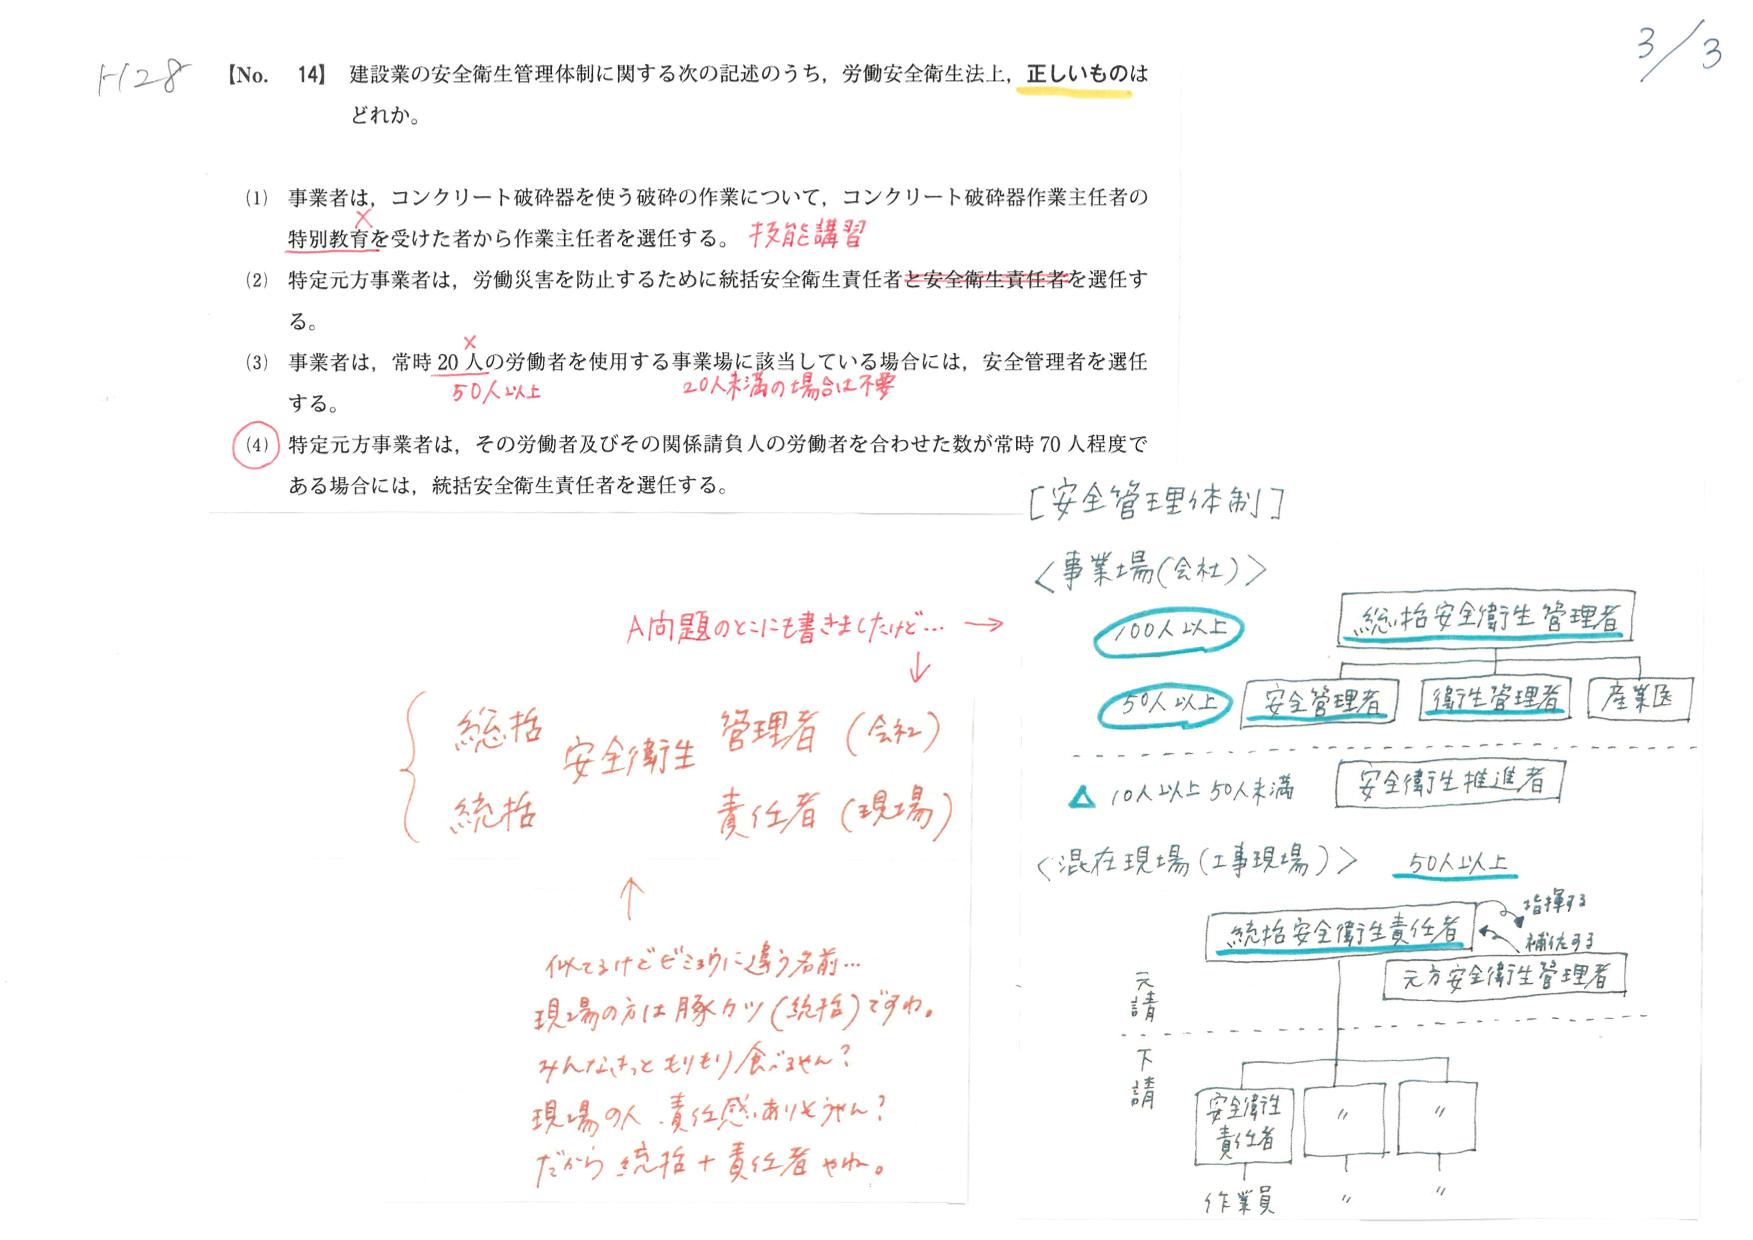 H28
3/3
【No. 14】 建設業の安全衛生管理体制に関する次の記述のうち，労働安全衛生法上，正しいものは
どれか。
(1) 事業者は，コンクリート破砕器を使う破砕の作業について，コンクリート破砕器作業主任者の
×
特別教育を受けた者から作業主任者を選任する。 技能講習
(2) 特定元方事業者は，労働災害を防止するために統括安全衛生責任者と安全衛生責任者を選任す
る。
×
(3) 事業者は，常時 20 人の労働者を使用する事業場に該当している場合には，安全管理者を選任
50人以上 20人未満の場合は不要
する。
(4) 特定元方事業者は，その労働者及びその関係請負人の労働者を合わせた数が常時 70 人程度で
ある場合には，統括安全衛生責任者を選任する。
A問題のとこにも書きましたけど… →
↓
総括 安全衛生 管理者 (会社)
統括 責任者 (現場)
↑
似てるけどビミョウに違う名前…
現場の方は豚カツ(統括)ですわ。
みんなきっともりもり食べるやん?
現場の人、責任感ありそうやん?
だから 統括 + 責任者 やね。
[安全管理体制]
<事業場(会社)>
100人以上 総括安全衛生管理者
50人以上 安全管理者 衛生管理者 産業医
△ 10人以上50人未満 安全衛生推進者
<混在現場(工事現場)> 50人以上
統括安全衛生責任者 指揮する
補佐する
元方安全衛生管理者
元請
下請
安全衛生責任者 〃 〃
作業員 〃 〃